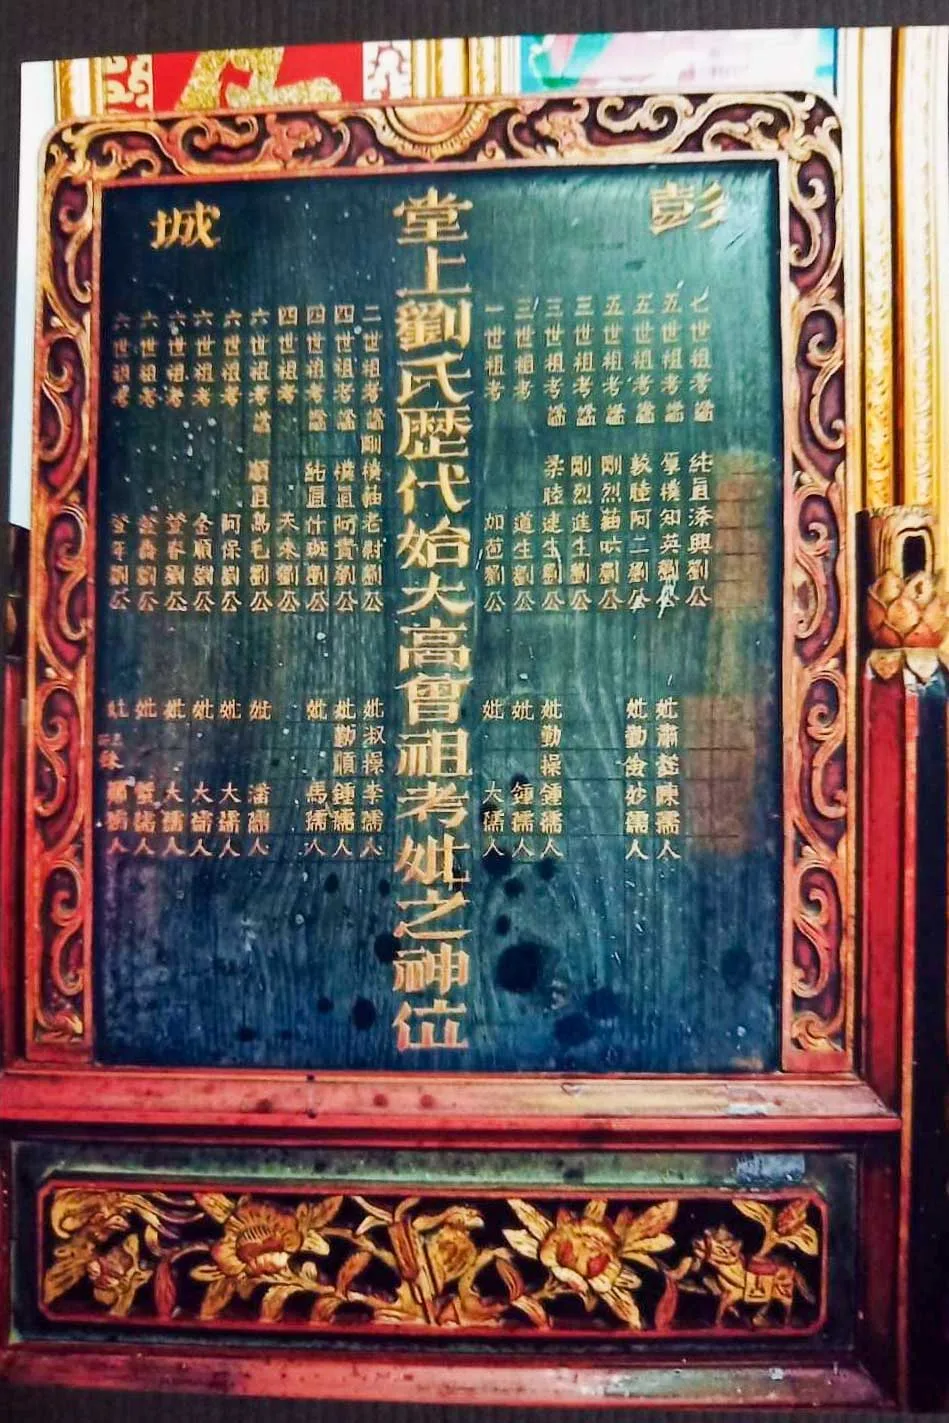 彭
七世祖考諡純直添興劉公
五世祖考諡樸知英劉公 妣肅莊陳孺人
五世祖考諡敦睦阿二劉公 妣勤儉妙孺人
五世祖考諡剛烈劉公
三世祖考諡剛烈進生劉公
三世祖考諡柔睦建生劉公 妣勤操鍾孺人
三世祖考道生劉公 妣鍾孺人
一世祖考如苞劉公 妣大孺人
堂上劉氏歷代始太高曾祖考妣之神位
二世祖考諡剛樸老劉公 妣淑操李孺人
四世祖考諡樸直阿貴劉公 妣勤順鍾孺人
四世祖考諡純直什班劉公 妣馬孺人
四世祖考天來劉公
六世祖考諡順直萬毛劉公 妣潘孺人
六世祖考阿保劉公 妣大孺人
六世祖考全順劉公 妣大孺人
六世祖考登春劉公 妣大孺人
六世祖考金劉公 妣孺人
六世祖考登年劉公 妣人
城